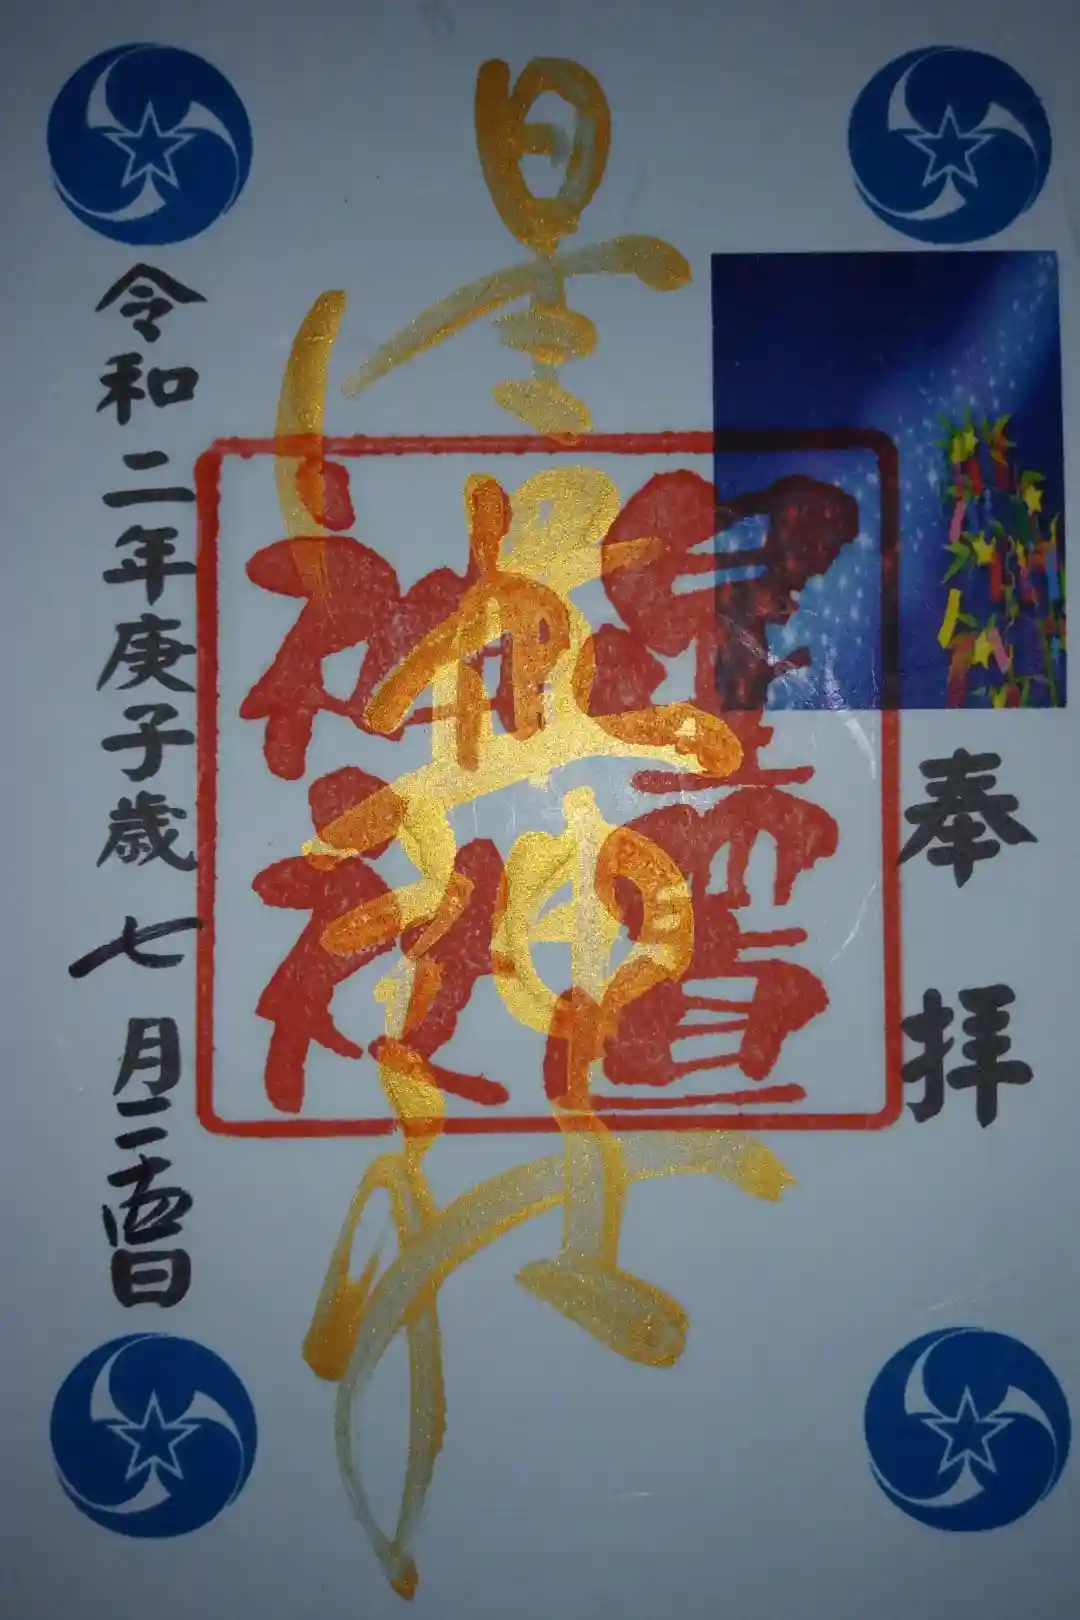 奉拝
星置神社
星置神社
令和二年庚子歳 七月二日